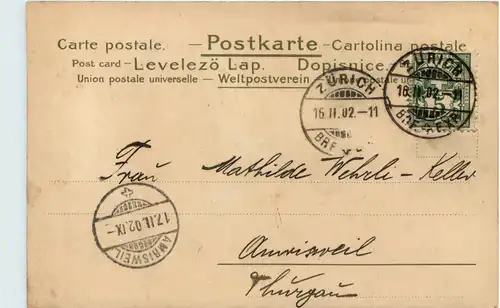 Carte postale. – Postkarte – Cartolina postale
Post card – Levelezö Lap. Dopisnice.
Union postale universelle – Weltpostverein postale
ZÜRICH
16.II.02.–11
BRF.
ZÜRICH
16.II.02.–11
BRF.
5
Frau Mathilde Wehrli-Keller
AMRISWEIL
17.II.02.IX–
Amrisweil
Thurgau